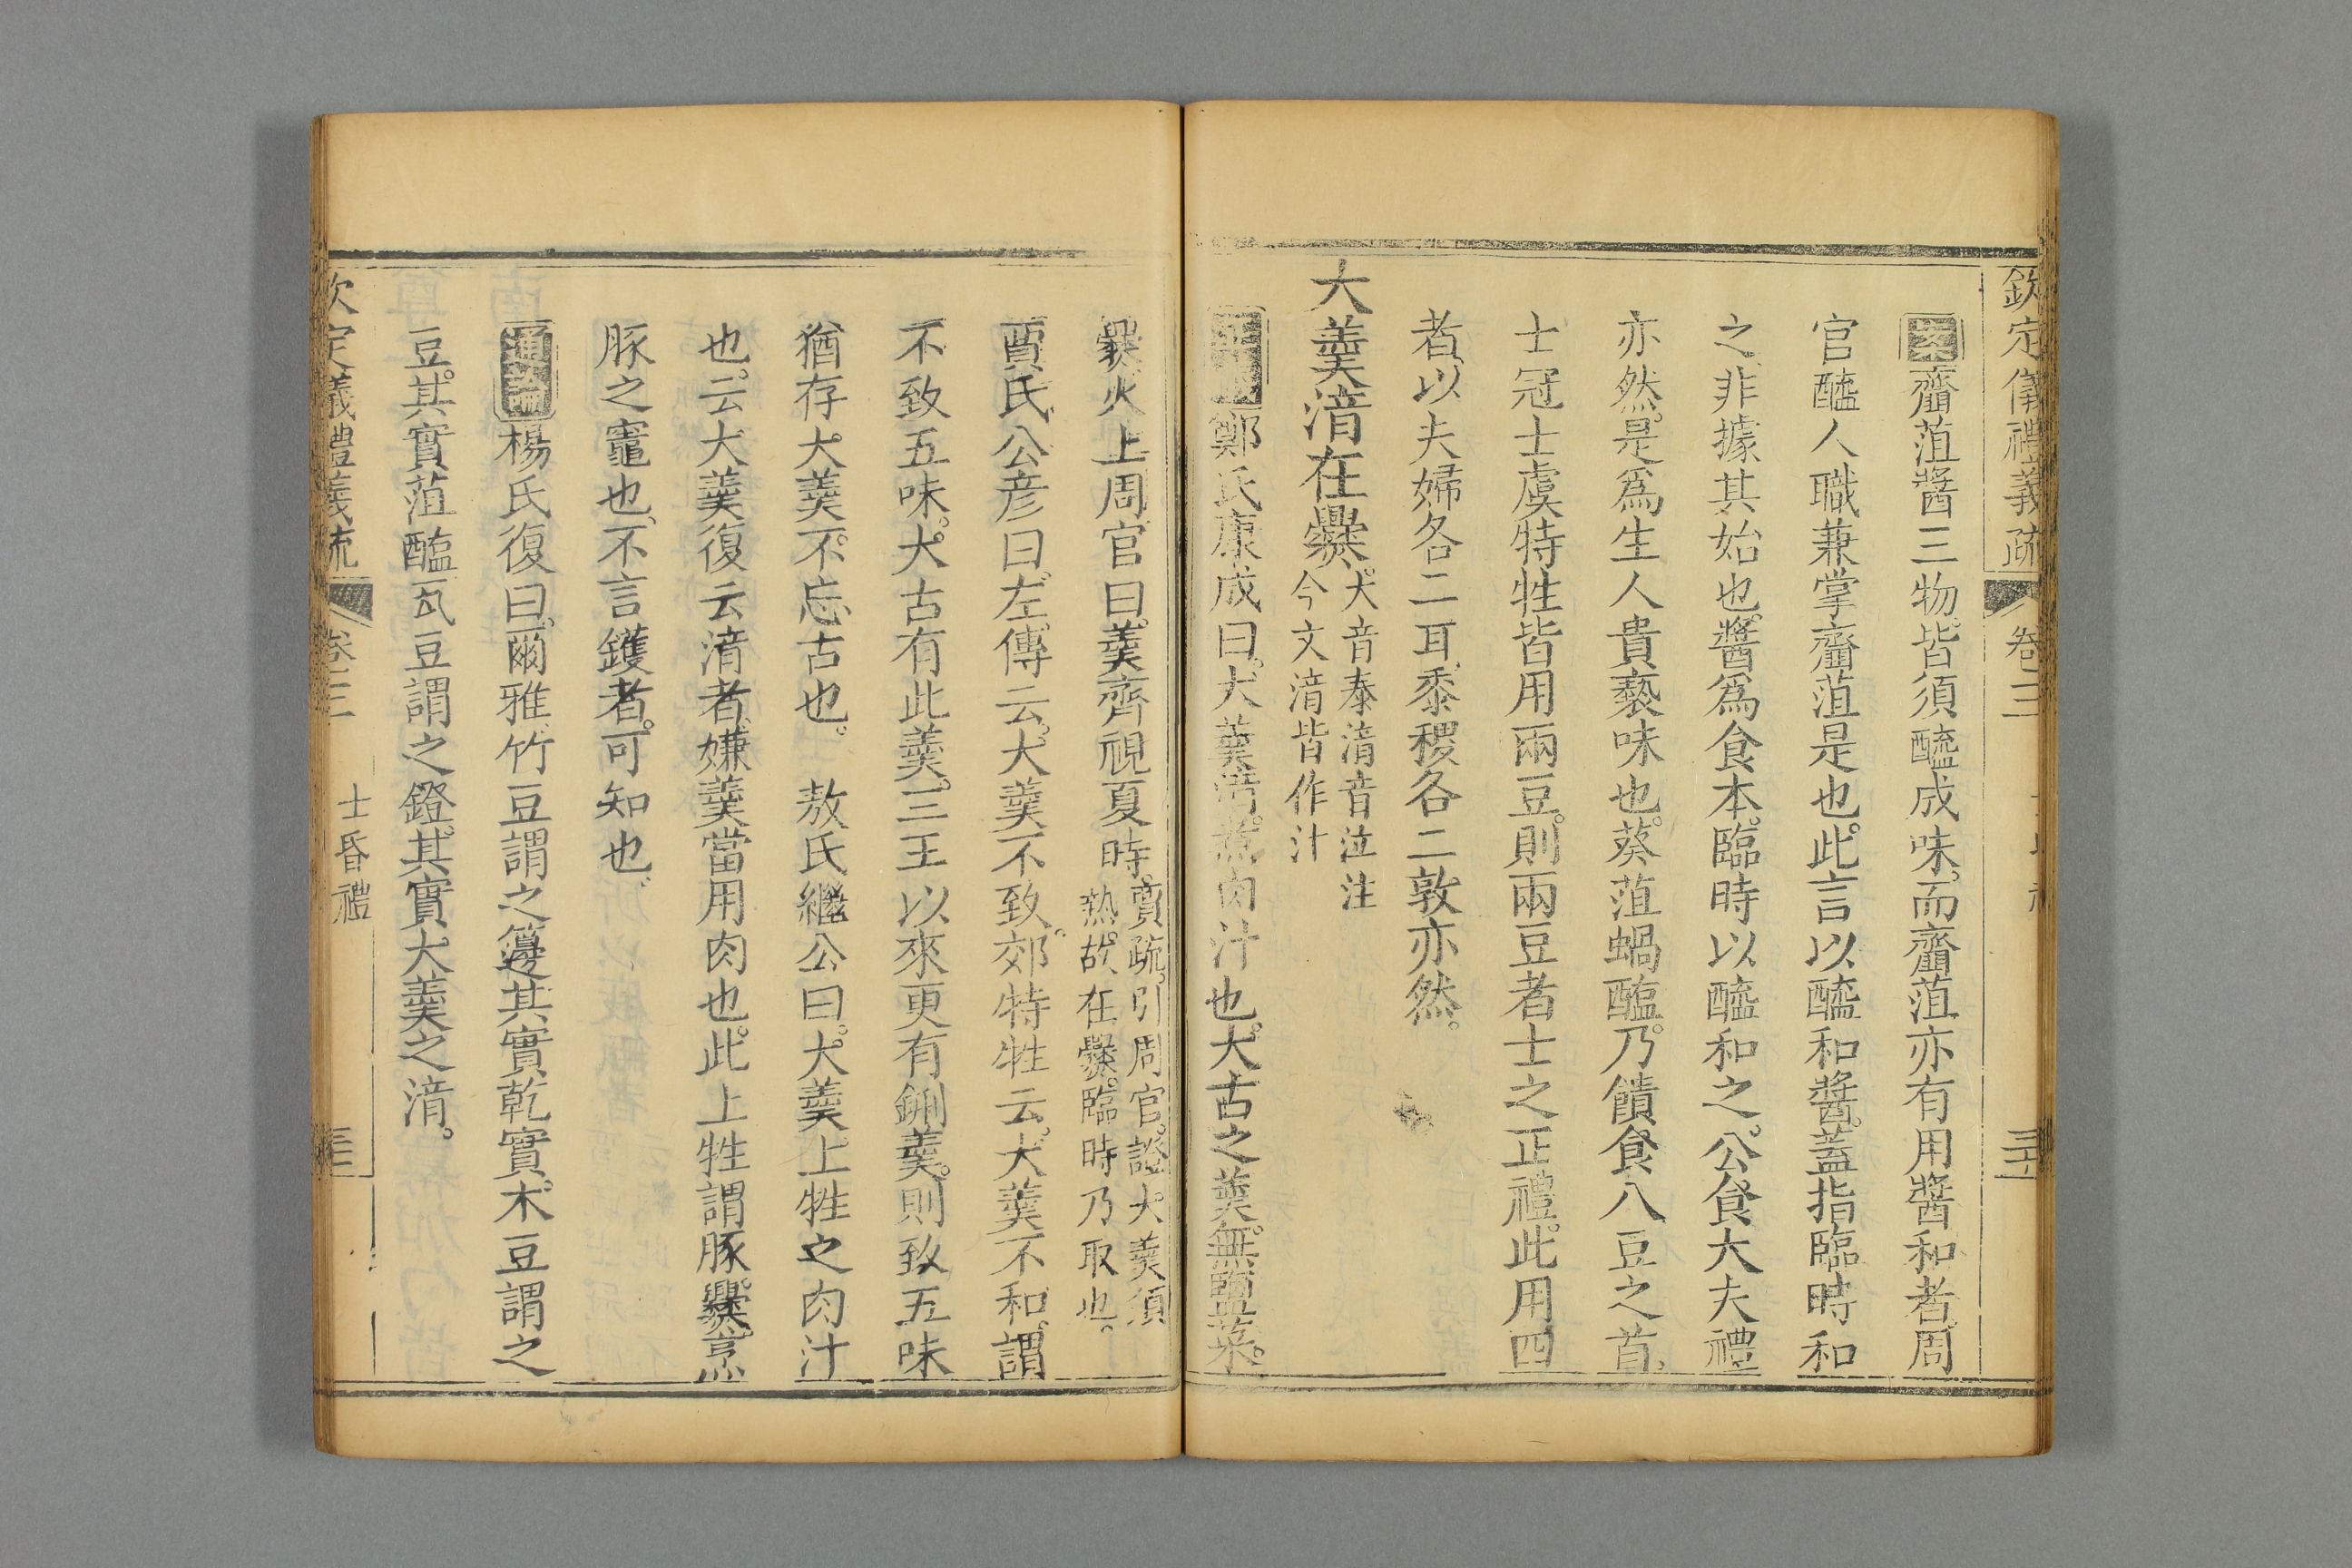 欽定儀禮義疏 卷三
案齏菹醬三物。皆須醯成味。而齏菹亦有用醬和者。周
官醯人職兼掌齏菹是也。此言以醯和醬。蓋指臨時和
之。非據其始也。醬爲食本。臨時以醯和之。公食大夫禮
亦然。是爲生人貴褻味也。葵菹蝸醢。乃饋食八豆之首。
士冠士虞特牲皆用兩豆。則兩豆者士之正禮。此用四
者。以夫婦各二耳。黍稷各二敦亦然。
大羹湆在爨。大音泰湆音泣注
今文湆皆作汁
鄭氏康成曰。大羹湆。煮肉汁也。大古之羹。無鹽菜。
爨火上周官曰。羹齊視夏時。賈疏。引周官。證大羹須
熱。故在爨。臨時乃取也。
賈氏公彦曰。左傳云。大羹不致。郊特牲云。大羹不和。謂
不致五味。大古有此羹。三王以來更有鉶羹。則致五味
猶存大羹不忘古也。 敖氏繼公曰。大羹上牲之肉汁
也。云大羹復云湆者。嫌羹當用肉也。此上牲謂豚。爨烹
豚之竈也。不言鑊者。可知也。
通論楊氏復曰。爾雅。竹豆謂之籩。其實乾實。木豆謂之
豆。其實菹醢。瓦豆謂之鐙。其實大羹之湆。
欽定儀禮義疏 卷三 士昏禮